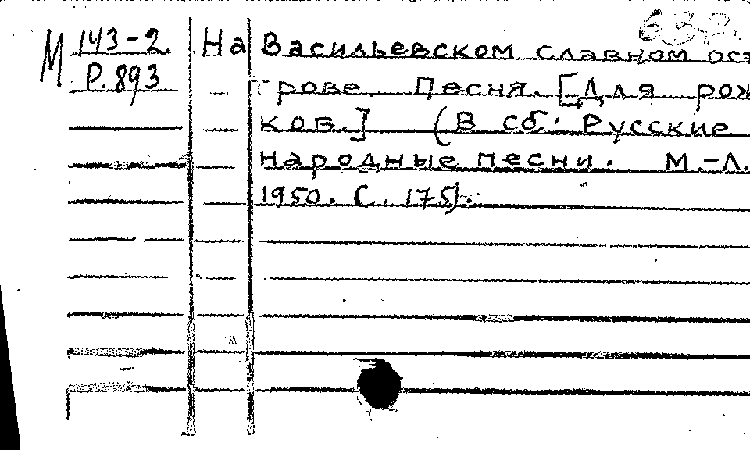 63р.
М 143-2 На Васильевском славном ост
Р.893 трове. Песня. [Для рож
ков.] (В сб: Русские
народные песни. М.-Л.
1950. С. 175).